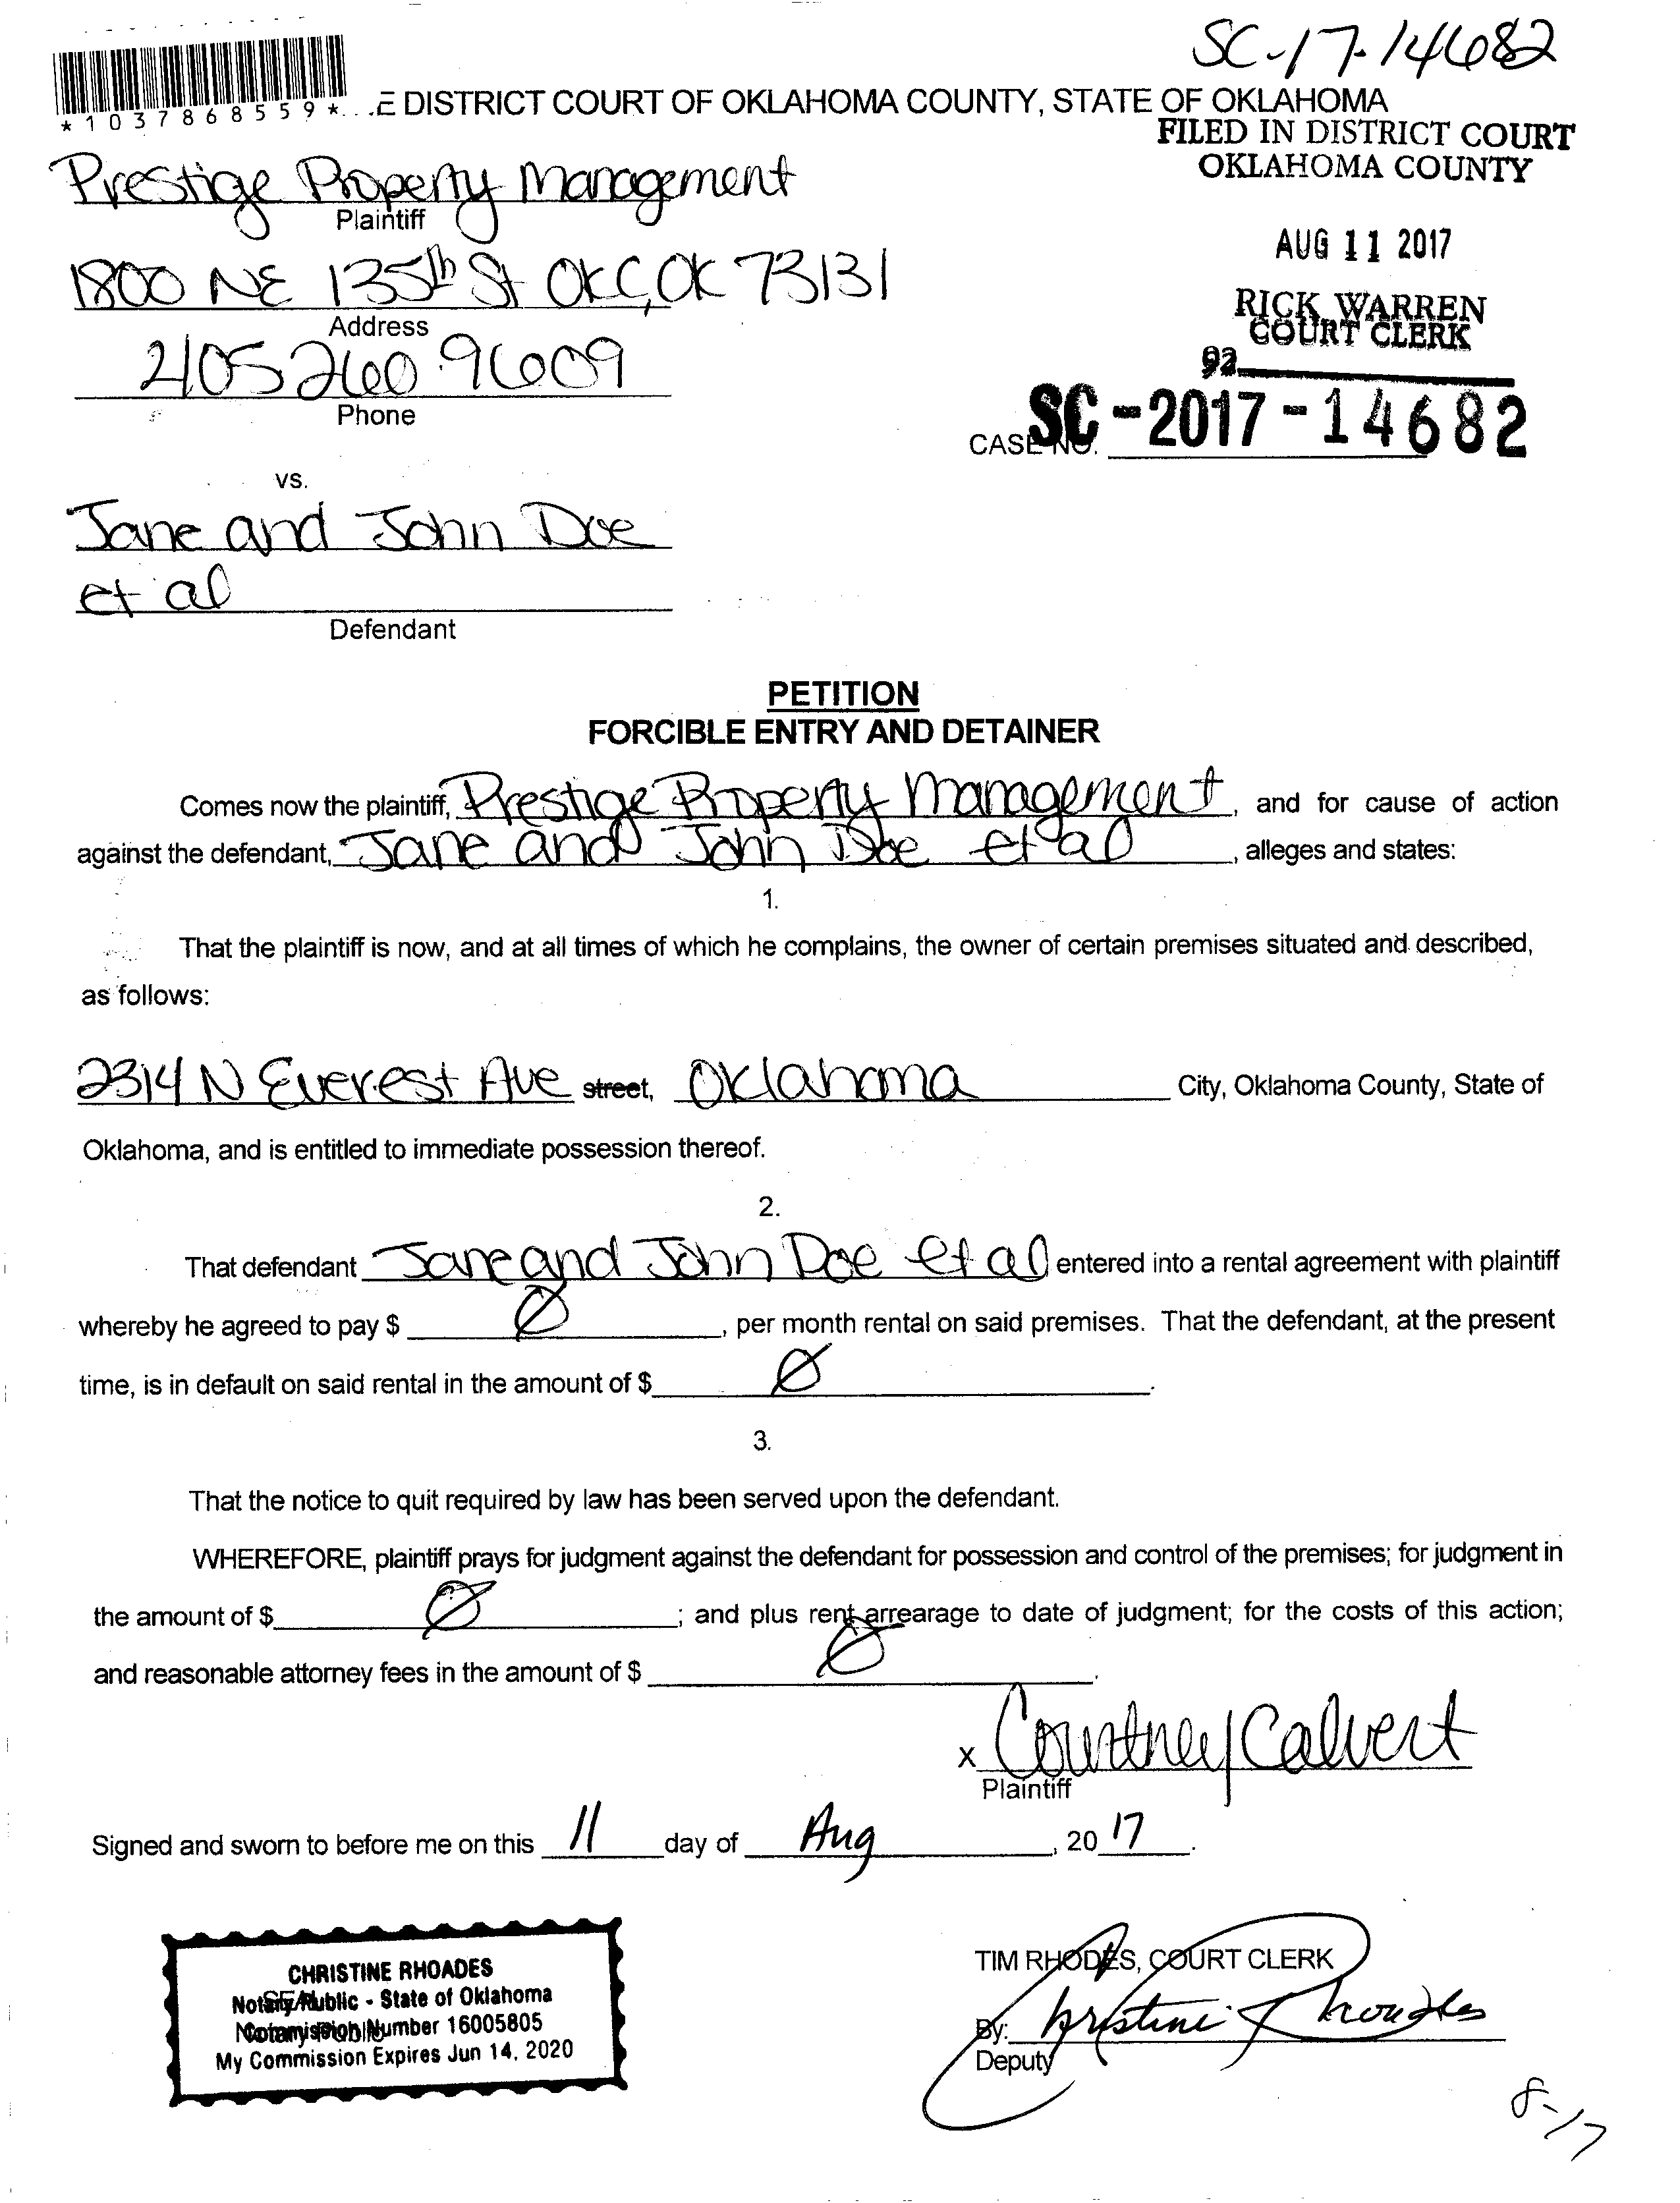 SC-17-14682
*1037868559*
E DISTRICT COURT OF OKLAHOMA COUNTY, STATE OF OKLAHOMA
FILED IN DISTRICT COURT
OKLAHOMA COUNTY
Prestige Property Management
Plaintiff
AUG 11 2017
1800 NE 135th St OKC, OK 73131
Address
RICK WARREN
COURT CLERK
405 260 9609
Phone
92
CASE NO. SC-2017-14682
vs.
Jane and John Doe
et al
Defendant
PETITION
FORCIBLE ENTRY AND DETAINER
Comes now the plaintiff, Prestige Property Management, and for cause of action
against the defendant, Jane and John Doe et al, alleges and states:
1.
That the plaintiff is now, and at all times of which he complains, the owner of certain premises situated and described,
as follows:
2314 N Everest Ave street, Oklahoma City, Oklahoma County, State of
Oklahoma, and is entitled to immediate possession thereof.
2.
That defendant Jane and John Doe et al entered into a rental agreement with plaintiff
whereby he agreed to pay $ Ø, per month rental on said premises. That the defendant, at the present
time, is in default on said rental in the amount of $ Ø.
3.
That the notice to quit required by law has been served upon the defendant.
WHEREFORE, plaintiff prays for judgment against the defendant for possession and control of the premises; for judgment in
the amount of $ Ø; and plus rent arrearage to date of judgment; for the costs of this action;
and reasonable attorney fees in the amount of $ Ø.
x Courtney Calvert
Plaintiff
Signed and sworn to before me on this 11 day of Aug, 2017.
CHRISTINE RHOADES
Notary Public - State of Oklahoma
Commission Number 16005805
My Commission Expires Jun 14, 2020
TIM RHODES, COURT CLERK
By: Christine Rhoades
Deputy
8-17